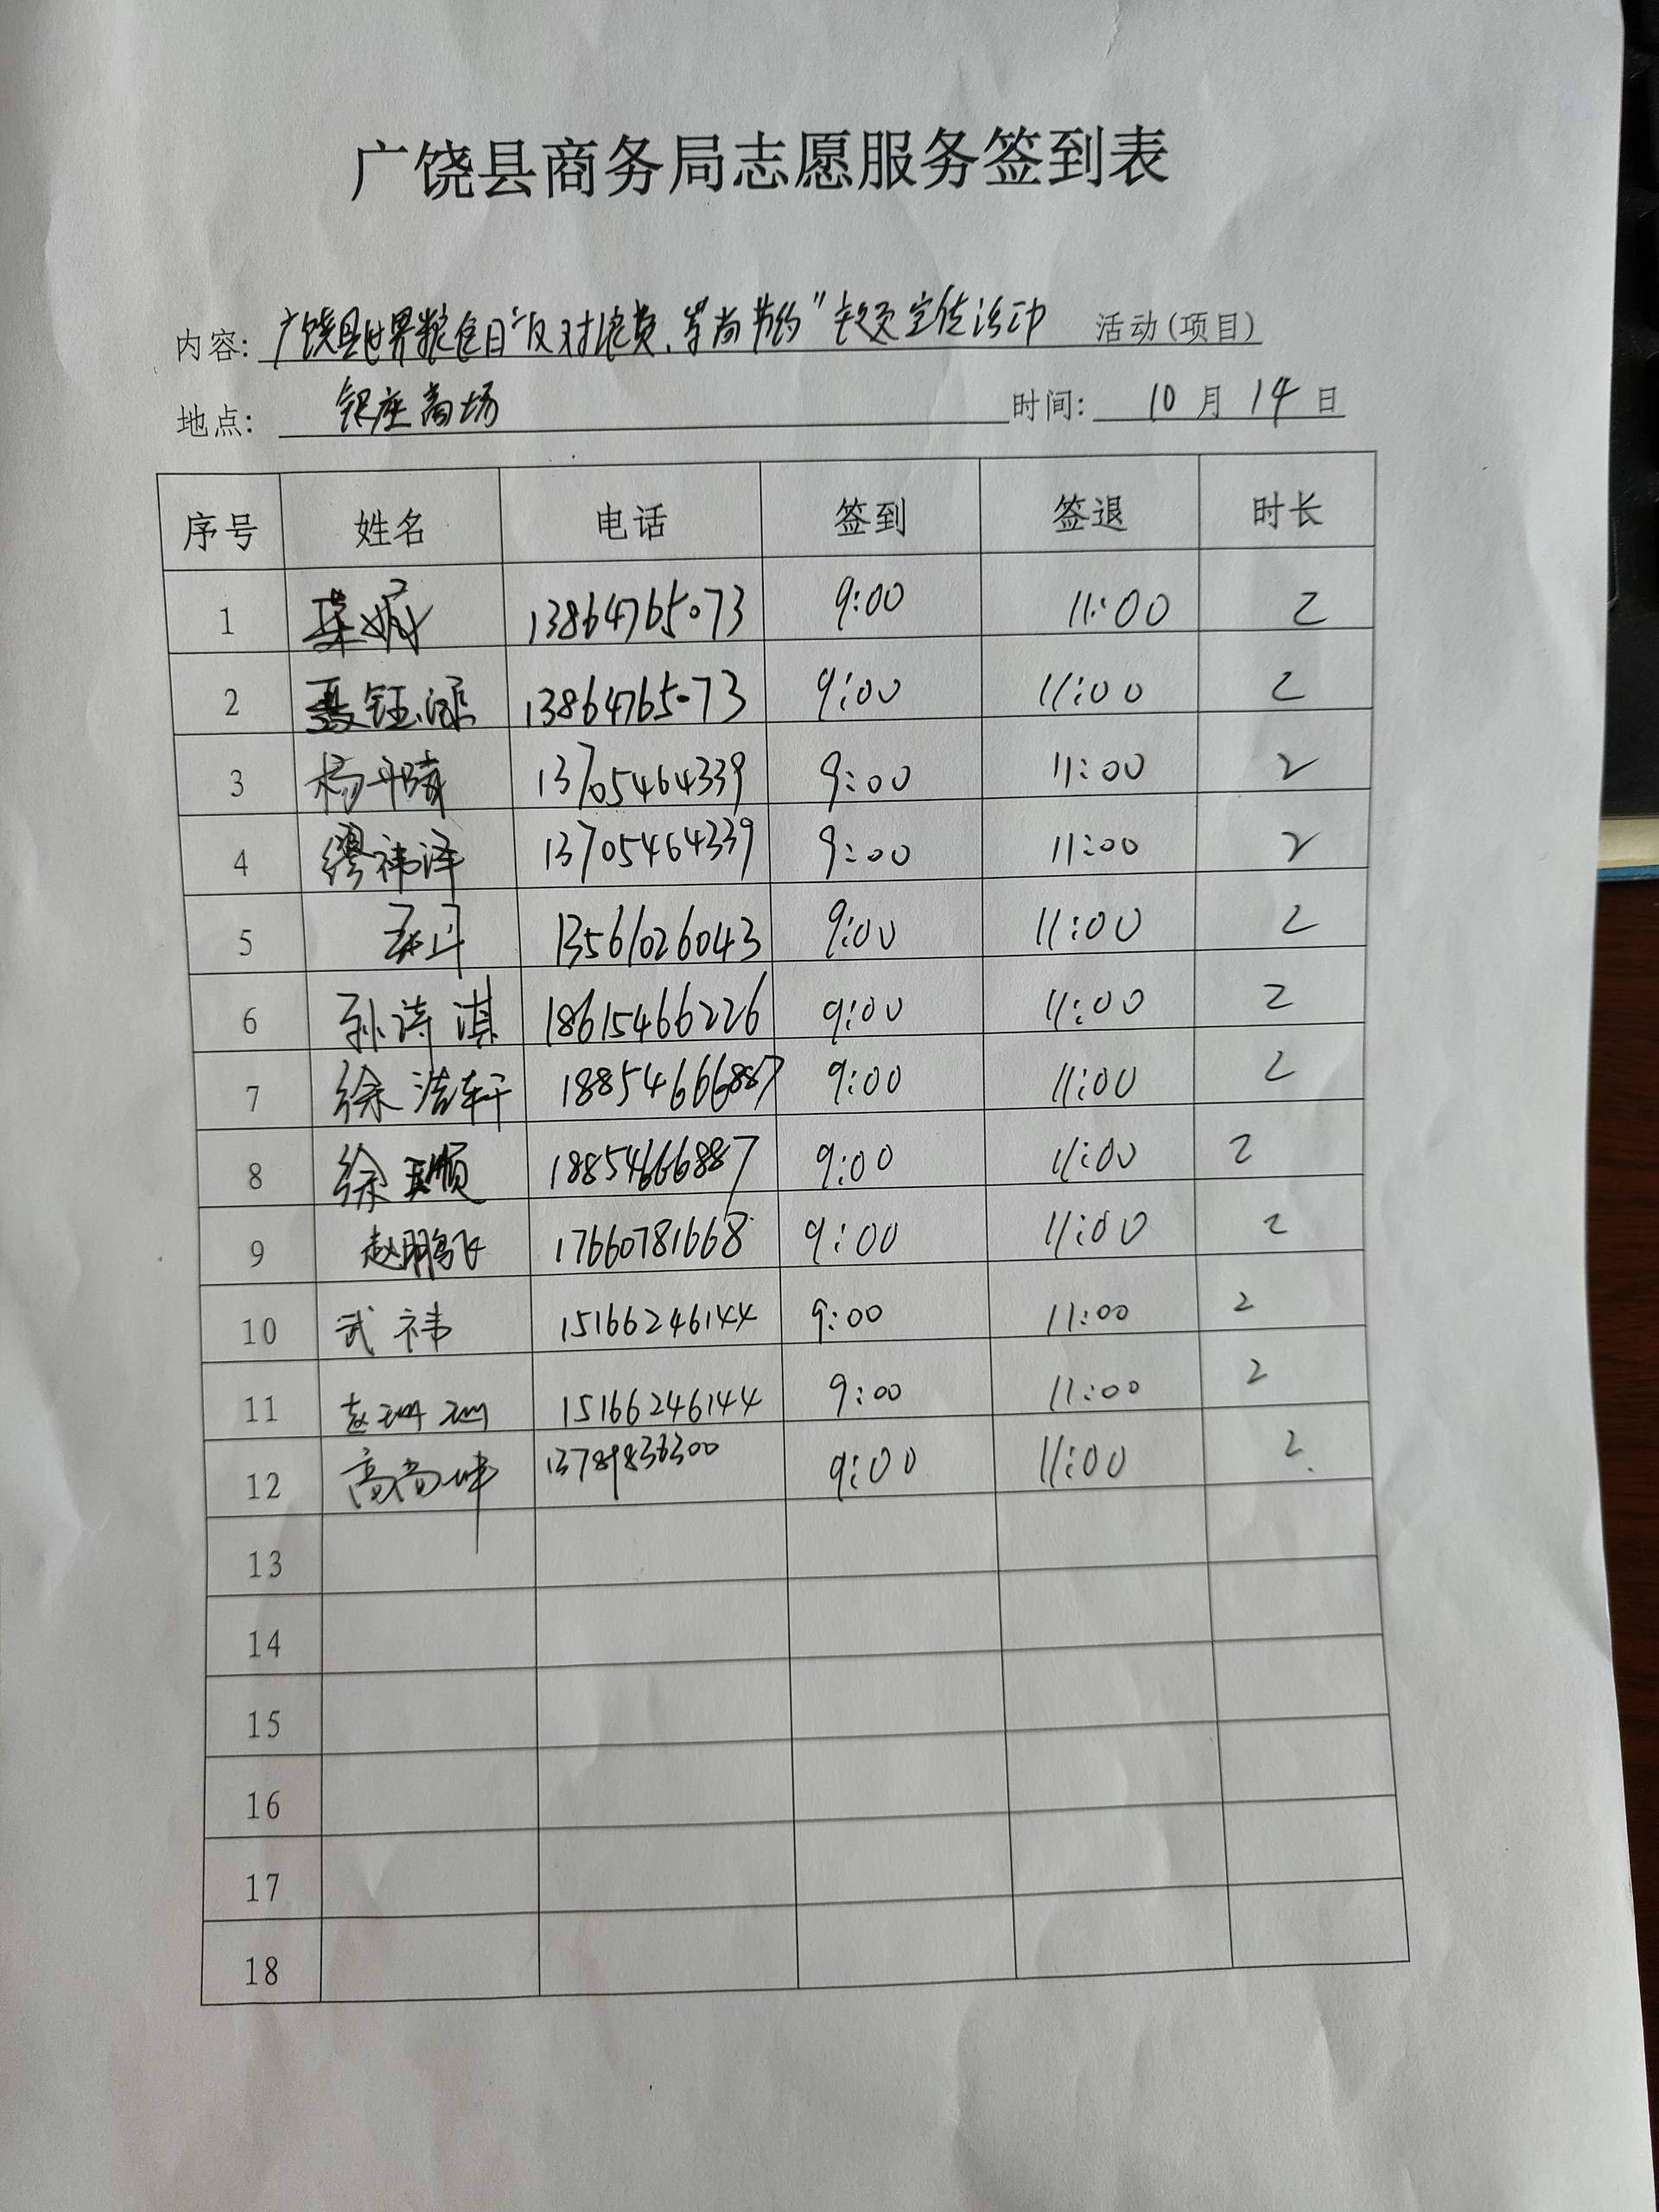 广饶县商务局志愿服务签到表
内容: 广饶县世界粮食日"反对浪费、崇尚节约"主题宣传活动 活动(项目)
地点: 银座商场 时间: 10 月 14 日
序号 姓名 电话 签到 签退 时长
1 13864765073 9:00 11:00 2
2 13864765073 9:00 11:00 2
3 杨丹 13705464339 9:00 11:00 2
4 缪祎泽 13705464339 9:00 11:00 2
5 13561026043 9:00 11:00 2
6 孙诗淇 18615466226 9:00 11:00 2
7 徐浩轩 18854666887 9:00 11:00 2
8 徐 顺 18854666887 9:00 11:00 2
9 赵鹏飞 17660781668 9:00 11:00 2
10 武祎 15166246144 9:00 11:00 2
11 赵珊珊 15166246144 9:00 11:00 2
12 高尚坤 13789836300 9:00 11:00 2
13
14
15
16
17
18